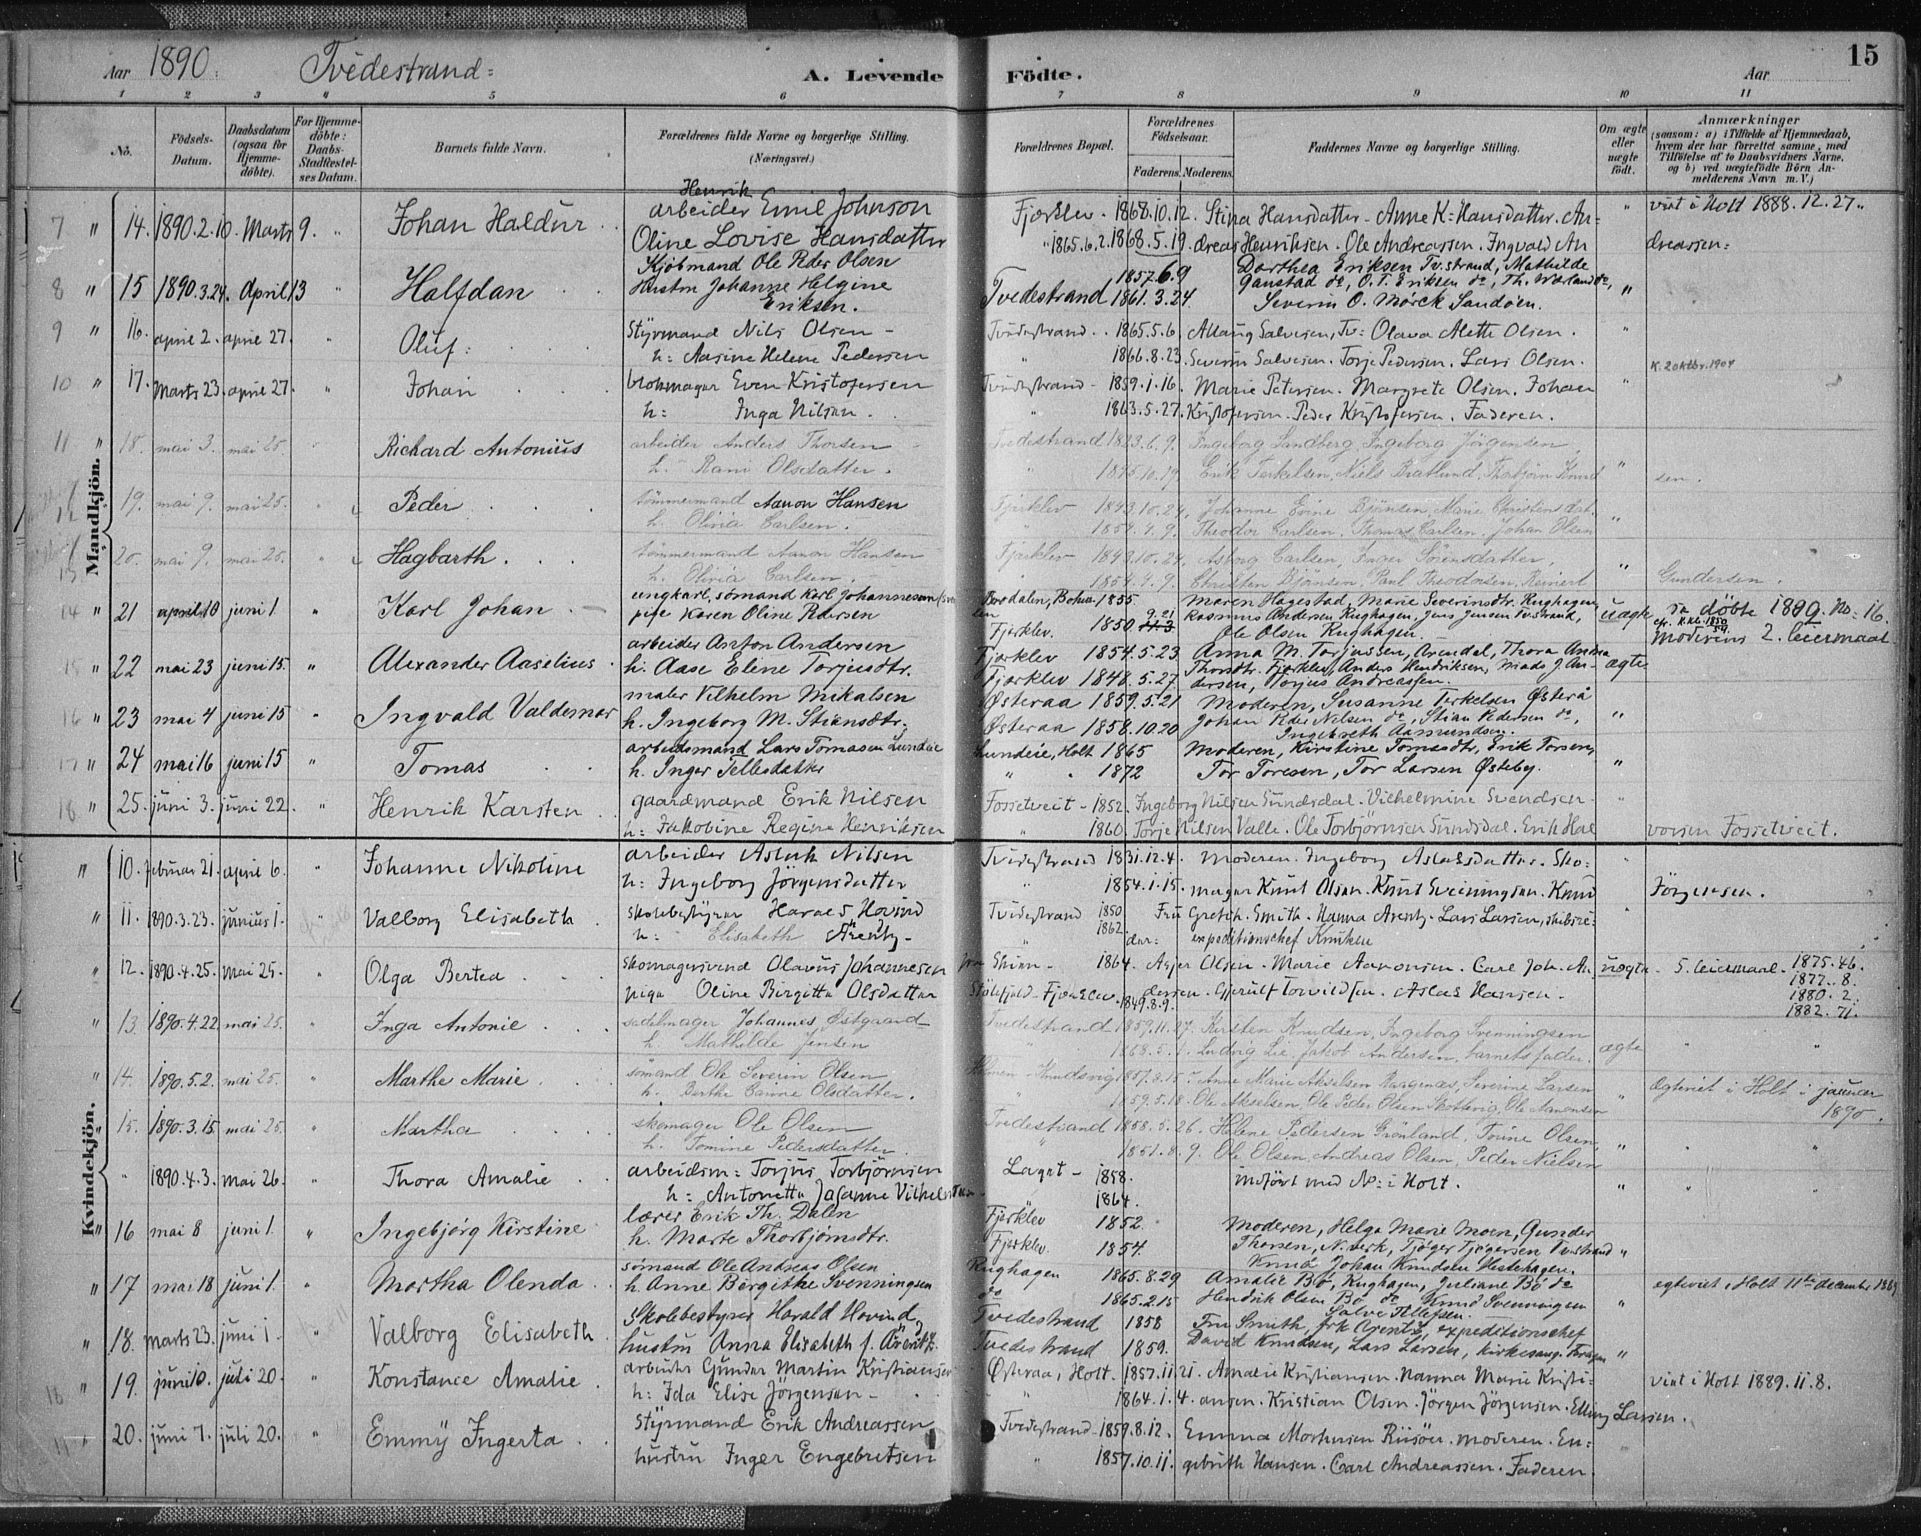 Aar 1890. Tvedestrand: A. Levende Födte. Aar 15
1 2 3 4 5 6 7 8 9 10 11
No. Födsels-Datum. Daabsdatum (ogsaa for Hjemmedöbte). For Hjemmedöbte: Daabs-Stadfæstelses Datum. Barnets fulde Navn. Forældrenes fulde Navne og borgerlige Stilling. (Næringsvei.) Forældrenes Bopæl. Forældrenes Födselsaar. Faderens. Moderens. Faddernes Navne og borgerlige Stilling. Om ægte eller uægte födt. Anmærkninger (saasom: a) i Tilfælde af Hjemmedaab, hvem der har forrettet samme, med Tilföielse af to Daabsvidners Navne, og b) ved uægtefödte Börn Anmelderens Navn m. V.)
Mandkjön.
Henrik
7 " 14. 1890.2.10. Marts 9. " Johan Haldur arbeider Emil Johnson Fjærklev. 1868.10.12. Stina Hansdatter. Anne K: Hansdatter. An= " viet i Holt 1888.12.27.
Oline Lovise Hansdatter " 1865.6.2. 1868.5.19. dreas Henriksen. Ole Andreassen. Ingvald An dreassen:
Kjöbmand Ole Peder Olsen 1857.6.9 Dorthea Eriksen Tv.strand, Mathilde
8 " 15 1890.3.24. April 13 " Halfdan Hustru Johanne Helgine Tvedestrand 1861.3.24 Ganstad do, O. T. Eriksen do, Th. Wærland do, "
Eriksen. Severin O. Mörck Sandöen.
9 " 16. april 2. april 27. " Oluf: Styrmand Nils Olsen - Tvedestrand. 1865.5.6. Aslaug Salvesen, Tv: Olava Alette Olsen. "
h: Aasine Helene Pedersen " 1866.8.23. Severin Salvesen. Torje Pedersen. Lars Olsen.
10 " 17. Marts 23. april 27. " Johan blokmager Even Kristofersen Tvedestrand - 1859.1.16. Marie Petersen. Margrete Olsen. Johan " K. 2 oktbr. 1904
h: Inga Nilsen. " 1863.5.27. Kristofersen. Peder Kristofersen. Faderen.
11 " 18. mai 3. mai 25. " Richard Antonius arbeider Anders Thorsen Tvedestrand 1823.6.9. Ingeborg Sandberg, Ingeborg Jörgensen
h. Rani Olsdatter. " 1845.10.19. Erik Terkelsen, Niels Bratlund, Thorbjörn Knud " sen.
12 19. mai 9. mai 25. " Peder tömmermand Aanon Hansen Fjærklev 1843.10.24. Johanne Evine Björnsen, Marie Christine
h. Olivia Carlsen. " 1854.4.9. Theodor Carlsen. Thomas Carlsen. Johan Olsen "
13 20. mai 9. mai 25. " Hagbarth. tömmermand Aanon Hansen Fjærklev 1843.10.24. Asborg Carlsen, Inger Sörensdatter,
h. Olivia Carlsen. " 1854.4.9. Christen Björnsen, Paul Theodorsen, Reinert " Gundersen.
14 " 21 april 10 juni 1. " Karl Johan ungkarl, sömand Karl Johannesson Brodalen, Bohus 1855 Maren Hagestad, Marie Severinsdtr. Rughagen
pige Karen Oline Pedersen Fjærklev. 1850 9.21 Rasmus Andersen Rughagen, Jens Jensen Tv.strand, uægte sa döbte 1889. No: 16.
Ole Olsen Rughagen. Moderens 2. leiermaal
15 " 22 mai 23 juni 15. " Alexander Aaselius arbeider Anton Andersen Fjærklev 1854.5.23 Anna M. Torjussen, Arendal, Thora Andrea ægte
h. Aase Elene Torjusdtr. Fjærklev 1848.5.27. Thorsdtr. Fjærklev, Anders Hendriksen, Mads J. Andersen, Torjus Andreassen.
16 " 23 mai 4 juni 15 " Ingvald Valdemar maler Vilhelm Mikalsen Østeraa 1859.5.21 Moderen, Susanne Terkelsen Østerå
h. Ingeborg M. Stiansdtr. Østeraa 1858.10.20 Johan Peder Nilsen do, Stian Pedersen do, "
Ingebreth Aamundsen.
17 " 24 mai 16 juni 15 " Tomas arbeidsmand Lars Tomasen Lundeie Lundeie, Holt 1865 Moderen, Kirstine Tomasdtr, Erik Torsen,
h. Inger Tellefsdatter " 1872 Tor Toresen, Tor Larsen Østeby. "
18 " 25. juni 3. juni 22. " Henrik Karsten gaardmand Erik Nilsen Fossetveit - 1852. Ingeborg Nilsen Sundsdal. Vilhelmine Svendsen "
h: Jakobine Regine Henriksen " 1860. Torje Nilsen Valle. Ole Torbjörnsen Sundsdal. Erik Hal vorsen Fossetveit.
Kvindekjön.
" 10. Februar 21. april 6. " Johanne Nikoline arbeider Aslak Nilsen Tvedestrand 1831.12.4. Moderen. Ingeborg Aslaksdatter. Sko= "
h: Ingeborg Jörgensdatter " 1854.1.15. mager Knut Olsen. Knut Sveinungsen. Knud Jörgensen.
" 11. 1890.3.23. junius 1. " Valborg Elisabeth Skolebestyrer Harald Hovind Tvedestrand 1850 Fru Gretch. Smith. Nanna Arentz. Lars Larsen, skibsre= "
h: Elisabeth Arentz - " 1862. der: expeditionschef Knutsen
" 12. 1890.4.25. Mai 25. " Olga Bertea skomagersvend Olavus Johannesen fra Skien - 1864. Asjer Olsen. Marie Aanonsen. Carl Joh. An= uægte - 5. leiermaal 1875.46.
pige Oline Birgitte Olsdatter Fjærklev. 1849.8.9. dersen. Gjerulf Torvildsen. Aslak Hansen. 1877.8.
1880.2.
1882.71.
" 13. 1890.4.22. mai 25. " Inga Antonie sadelmager Johannes Østgaard Tvedestrand 1859.11.27. Kirsten Knudsen, Ingeborg Svenningsen
h. Mathilde Jensen " 1868.5.1. Ludvig Lie, Jakob Andersen, barnets fader. ægte "
" 14. 1890.5.2. mai 25. " Marthe Marie sömand Ole Severin Olsen 1857.8.15. Anne Marie Akselsen Raagenæs, Severine Larsen
h. Berthe Olsdatter. " 1859.5.18. Ole Akselsen, Ole Peder Olsen Skottevig, Ole Aanonsen " Ægteviet i Holt i januar 1890.
" 15. 1890.3.15. mai 25. " Martha skomager Ole Olsen Tvedestrand 1858.5.26. Helene Pedersen Grönland, Tomine Olsen,
h. Tomine Pedersdatter. " 1851.8.9. Ole Olsen, Andreas Olsen, Peder Nielsen "
" 1890.4.3. mai 26. " Thora Amalie arbeidsm: Torjus Torbjörnsen Laget - 1858. indfört med No: i Holt. "
h: Antonette Josanne Vilhelmsen 1864.
" 16 mai 8 juni 1. " Ingebjörg Kirstine lærer Erik Th. Dalen Fjærklev 1852. Moderen, Helga Marie Moen, Gunder
h. Marte Thorbjörnsdtr. Fjærklev. 1854. Thorsen, N. verk, Tjöger Tjögersen Tv.strand "
Knud Johan Knudsen Hestehagen.
" 17 mai 18 juni 1. " Martha Olenda sömand Ole Andreas Olsen Rughagen 1865.8.29 Amalie Bö, Rughagen, Juliane Bö do egteviet i Holt 11te december 1889
h. Anne Birgitte Svenningsen do 1865.2.15 Hendrik Olsen Bö do Knud Svenningsen "
Salve Tellefsen.
" 18. marts 23. juni 1. " Valborg Elisabeth Skolebestyrer Harald Hovind Tvedestrand 1858 Fru Smith, frk Arentz, expeditionschef
hustru Anna Elisabeth f. Arentz Tvedestrand 1859. David Knudsen, Lars Larsen, kirkesang. "
" 19. juni 10. juli 20. " Konstance Amalie arbeider Gunder Martin Kristiansen Østeraa, Holt. 1857.11.21. Amalie Kristiansen. Nanna Marie Kristi= viet i Holt 1889.11.8.
h: Ida Elise Jörgensen - " 1864.1.4. ansen. Kristian Olsen. Jörgen Jörgensen. Elling Larsen.
" 20. juni 7. juli 20. " Emmy Ingerta Styrmand Erik Andreassen Tvedestrand - 1859.8.12. Emma Mortensen Riisöer. Moderen. En=
hustru Inger Engebretsen " 1857.10.11. gebrith Hansen. Carl Andreassen. Faderen.